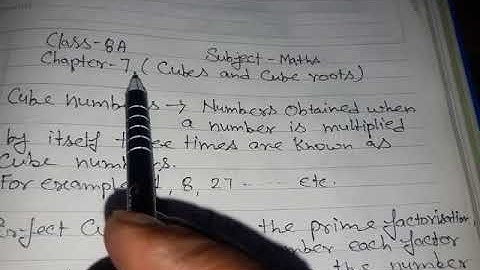 Class-8A
Subject - Maths
Chapter-7, (Cubes and Cube roots)
Cube numbers → Numbers obtained when
a number is multiplied
by itself three times are known as
Cube numbers.
For example 1, 8, 27 ---- etc.
Perfect the prime factorisation,
number each factor
the number